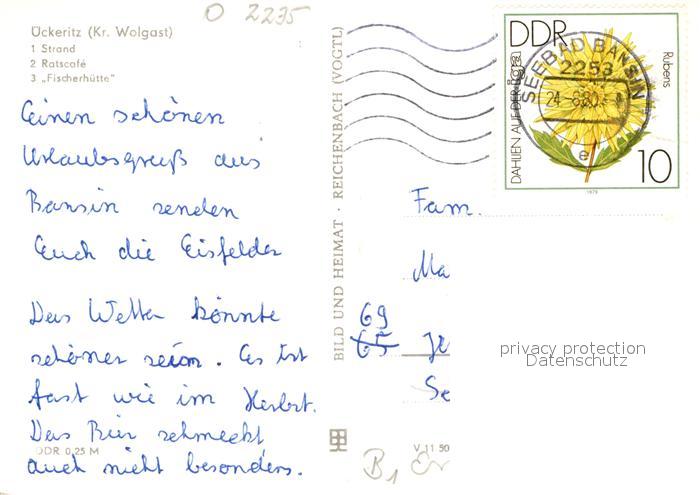 O 2235
Ückeritz (Kr. Wolgast)
1 Strand
2 Ratscafé
3 „Fischerhütte"
Einen schönen
Urlaubsgruß aus
Bansin senden
Euch die Eisfelder
Das Wetter könnte
schöner sein. Es ist
fast wie im Herbst.
Das Bier schmeckt
auch nicht besonders.
DDR 0,25 M
BILD UND HEIMAT · REICHENBACH (VOGTL)
V 11 50
DDR
DAHLIEN AUF DER
Rubens
10
1979
SEEBAD BANSIN
2253
24.-6.80
e
Fam.
Ma
69
65 Je
Se
B1
privacy protection
Datenschutz